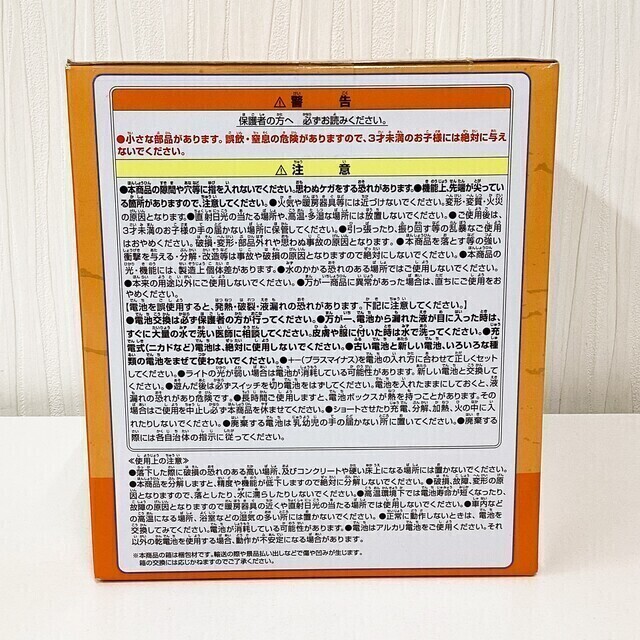 ⚠警告
保護者の方へ 必ずお読みください。
●小さな部品があります。誤飲・窒息の危険がありますので、3才未満のお子様には絶対に与え
ないでください。
⚠注意
●本商品の隙間や穴等に指を入れないでください。思わぬケガをする恐れがあります。●機能上、先端が尖ってい
る箇所がありますので、注意してください。●火気や暖房器具等には近づけないでください。変形・変質・火災
の原因となります。●直射日光の当たる場所や高温・多湿な場所には放置しないでください。●ご使用後は、
3才未満のお子様の手の届かない場所に保管してください。●引っ張ったり、振り回す等の乱暴なご使用
はおやめください。破損・変形・部品外れや思わぬ事故の原因となります。●本商品を落とす等の強い
衝撃を与える・分解・改造等は事故や破損の原因となりますので絶対に行わないでください。●本商品の
光・機能には、製造上個体差があります。●水のかかる恐れのある場所ではご使用しないでください。
●本来の用途以外にご使用しないでください。●万が一商品に異常があった場合は、直ちにご使用をお
やめください。
【電池を誤使用すると、発熱・破裂・液漏れの恐れがあります。下記に注意してください。】
●電池交換は必ず保護者の方が行ってください。●万が一、電池から漏れた液が目に入った時は、
すぐに大量の水で洗い医師に相談してください。皮膚や服に付いた時は水で洗ってください。●充
電式(ニカドなど)電池は、絶対に使用しないでください。●古い電池と新しい電池、いろいろな種
類の電池をまぜて使わないでください。●+−(プラスマイナス)を電池の入れ方に合わせて正しくセット
してください。●ライトの光が弱い場合は電池が消耗している可能性があります。新しい電池と交換して
ください。●遊んだ後は必ずスイッチを切り電池をはずしてください。電池を入れたままにしておくと、液
漏れの恐れがあり危険です。●長時間ご使用しますと、電池ボックスが熱を持つことがあります。その
場合はご使用を中止し必ず本商品を休ませてください。●ショートさせたり充電、分解、加熱、火の中に入
れたりしないでください。●廃棄する電池は乳幼児の手の届かない所に置いてください。●廃棄する
際には各自治体の指示に従ってください。
≪使用上の注意≫
●落下した際に破損の恐れのある高い場所、及びコンクリートや硬い床上になる場所には置かないでください。
●本商品を分解しますと、精度や機能が低下しますので絶対に分解しないでください。●破損、故障、変形の原
因となりますので、落としたり、水に濡らしたりしないでください。●高温環境下では電池寿命が短くなったり、
故障の原因となりますので暖房器具の近くや直射日光の当たる場所では使用しないでください。●車内など
の高温になる場所、浴室などの湿気の多い所には置かないでください。●正常に動作しないときは、電池を
交換してみてください。電池が消耗している可能性があります。●電池はアルカリ電池をご使用ください。それ
以外の乾電池を使用する場合、動作が不安定になる場合があります。
※本商品の箱は梱包材です。輸送の際や景品払い出しなどで傷や凹みが生じます。
箱の交換には応じかねますのでご了承ください。